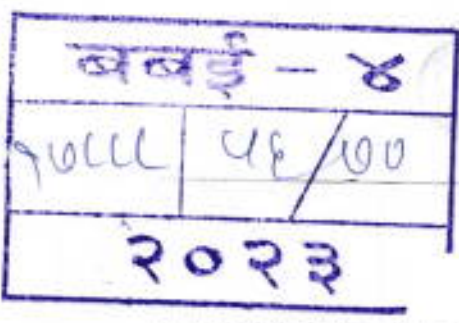 बबई - ४
१७८८८ ५६/७०
२०२३